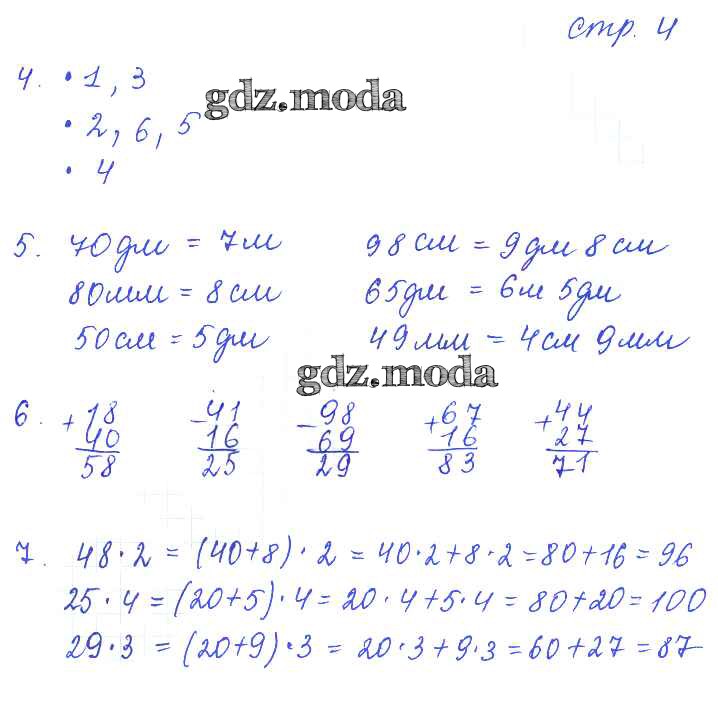 стр. 4
4. • 1, 3
gdz.moda
• 2, 6, 5
• 4
5. 70дм = 7м 98 см = 9дм 8 см
80мм = 8 см 65дм = 6м 5дм
50см = 5дм 49мм = 4см 9мм
gdz.moda
6. +18 -41 -98 +67 +44
40 16 69 16 27
58 25 29 83 71
7. 48·2 = (40+8)·2 = 40·2+8·2=80+16=96
25·4=(20+5)·4=20·4+5·4=80+20=100
29·3 =(20+9)·3 = 20·3+9·3=60+27=87